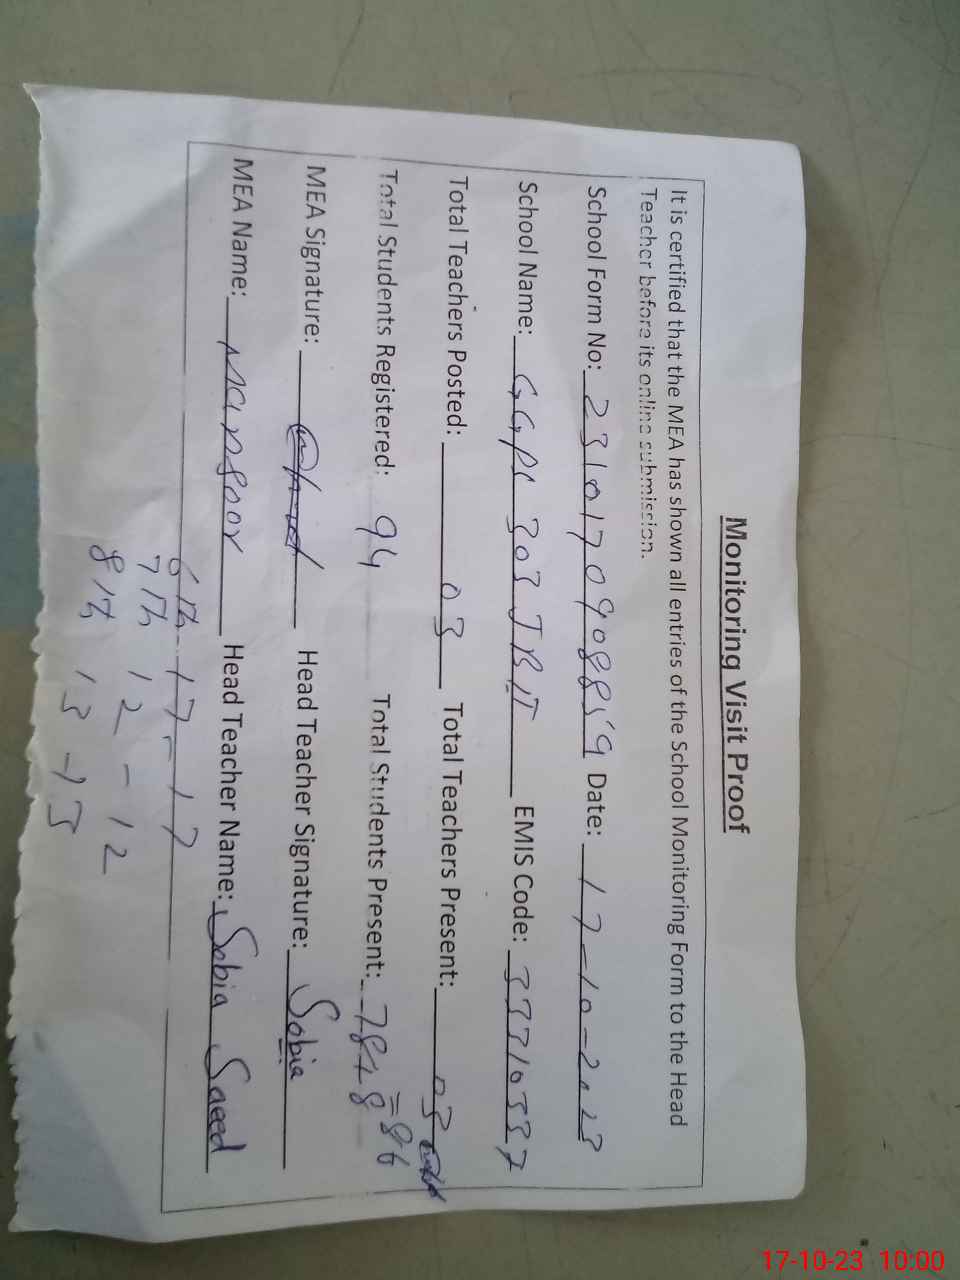 Monitoring Visit Proof
It is certified that the MEA has shown all entries of the School Monitoring Form to the Head
Teacher before its online submission.
School Form No: 2310170908859 Date: 17-10-2023
School Name: GGPS 303 JB IT EMIS Code: 33710337
Total Teachers Posted: 03 Total Teachers Present: 03
Total Students Registered: 94 Total Students Present: 78+8 =86
MEA Signature: Head Teacher Signature: Sobia
MEA Name: Mansoor Head Teacher Name: Sobia Saeed
6th 17-17
7th 12-12
8th 13-13
17-10-23 10:00